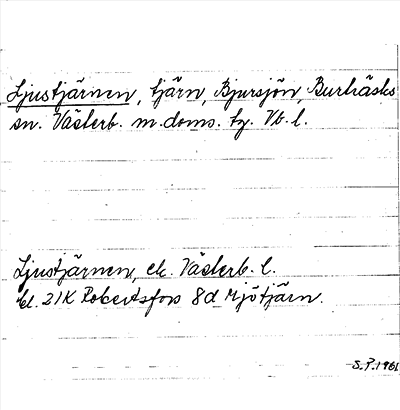 Ljustjärnen, tjärn, Bjursjön, Burträsks
sn. Västerb. m.doms. tg. Vb. l.
Ljustjärnen, ek. Västerb. l.
bl. 21K Robertsfors 8d Mjötjärn.
S.P. 1961